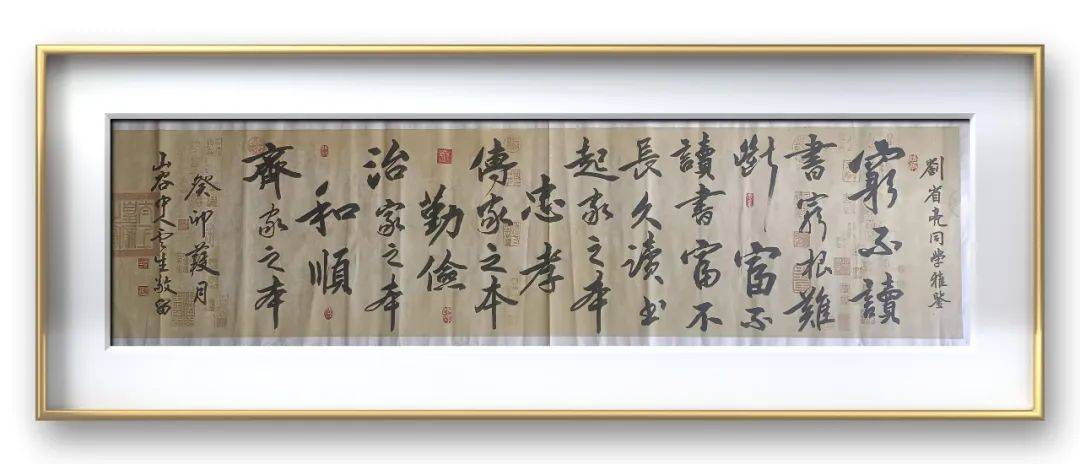 劉省亮同學雅鑒
窮不讀
書窮根難
斷富不
讀書富不
長久讀书
起家之本
忠孝
傳家之本
勤儉
治家之本
和順
齊家之本
癸卯葭月
山谷中人云生敬留